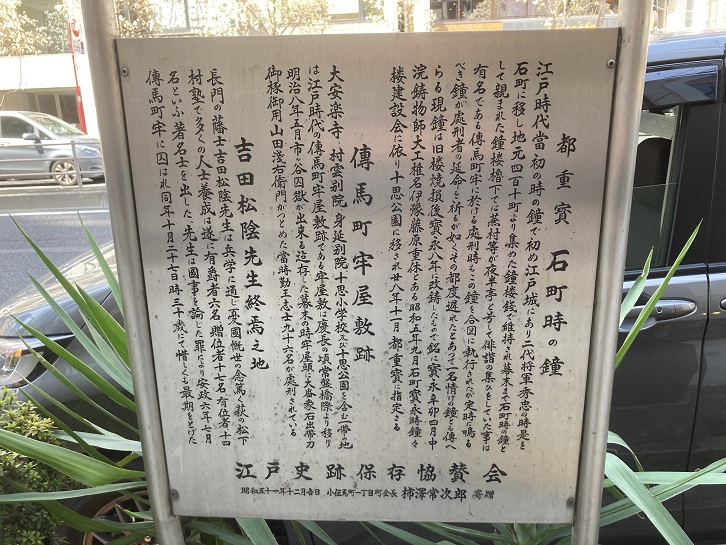 都重寳 石町時の鐘
江戸時代當初の時の鐘で初め江戸城にあり二代将軍秀忠の時是を
石町に移し地元四百十町より集めた鐘楼銭で維持され幕末まで石町時の鐘と
して親まれた鐘楼櫓下では蕪村等が夜半亭と号して俳諧の集りをしていた事は
有名である傳馬町牢に於ける処刑時もこの鐘を合図に執行されたが定時に鳴る
べき鐘が処刑者の延命を祈るが如くその都度遅れたとあって一名情けの鐘とも傳へ
らる現鐘は旧楼焼損後寳永八年に改鋳したもので銘に寳永辛卯四月中
浣鋳物師大工椎名伊豫藤原重休とある昭和五年九月石町寳永時鐘々
楼建設会に依り十思公園に移され廿八年十一月都重寳に指定さる
傳馬町牢屋敷跡
大安楽寺 村雲別院 身延別院 十思小学校及び十思公園を含む一帯の地
は江戸時代の傳馬町牢屋敷跡である牢屋敷は慶長の頃常盤橋際より移り
明治八年五月市ヶ谷囚獄が出来る迄存した幕末の時牢屋頭に大盗
御様御用山田浅右衛門がつとめた當時勤王志士九十六名が処刑されている
吉田松陰先生終焉之地
長門の藩士吉田松陰先生は兵学に通じ憂國慨世の念篤く萩の松下
村塾で多くの人士養成は遂に有爵者六名 贈位者十七名 有位者十四
名といふ著名士を出した、先生は國事を論じた罪により安政六年七月
傳馬町牢に囚はれ同年十月二十七日時三十歳にて惜しくも最期をとげた
江戸史跡保存協賛会
昭和五十一年十二月吉日 小伝馬町一丁目町会長 柿澤常次郎 寄贈